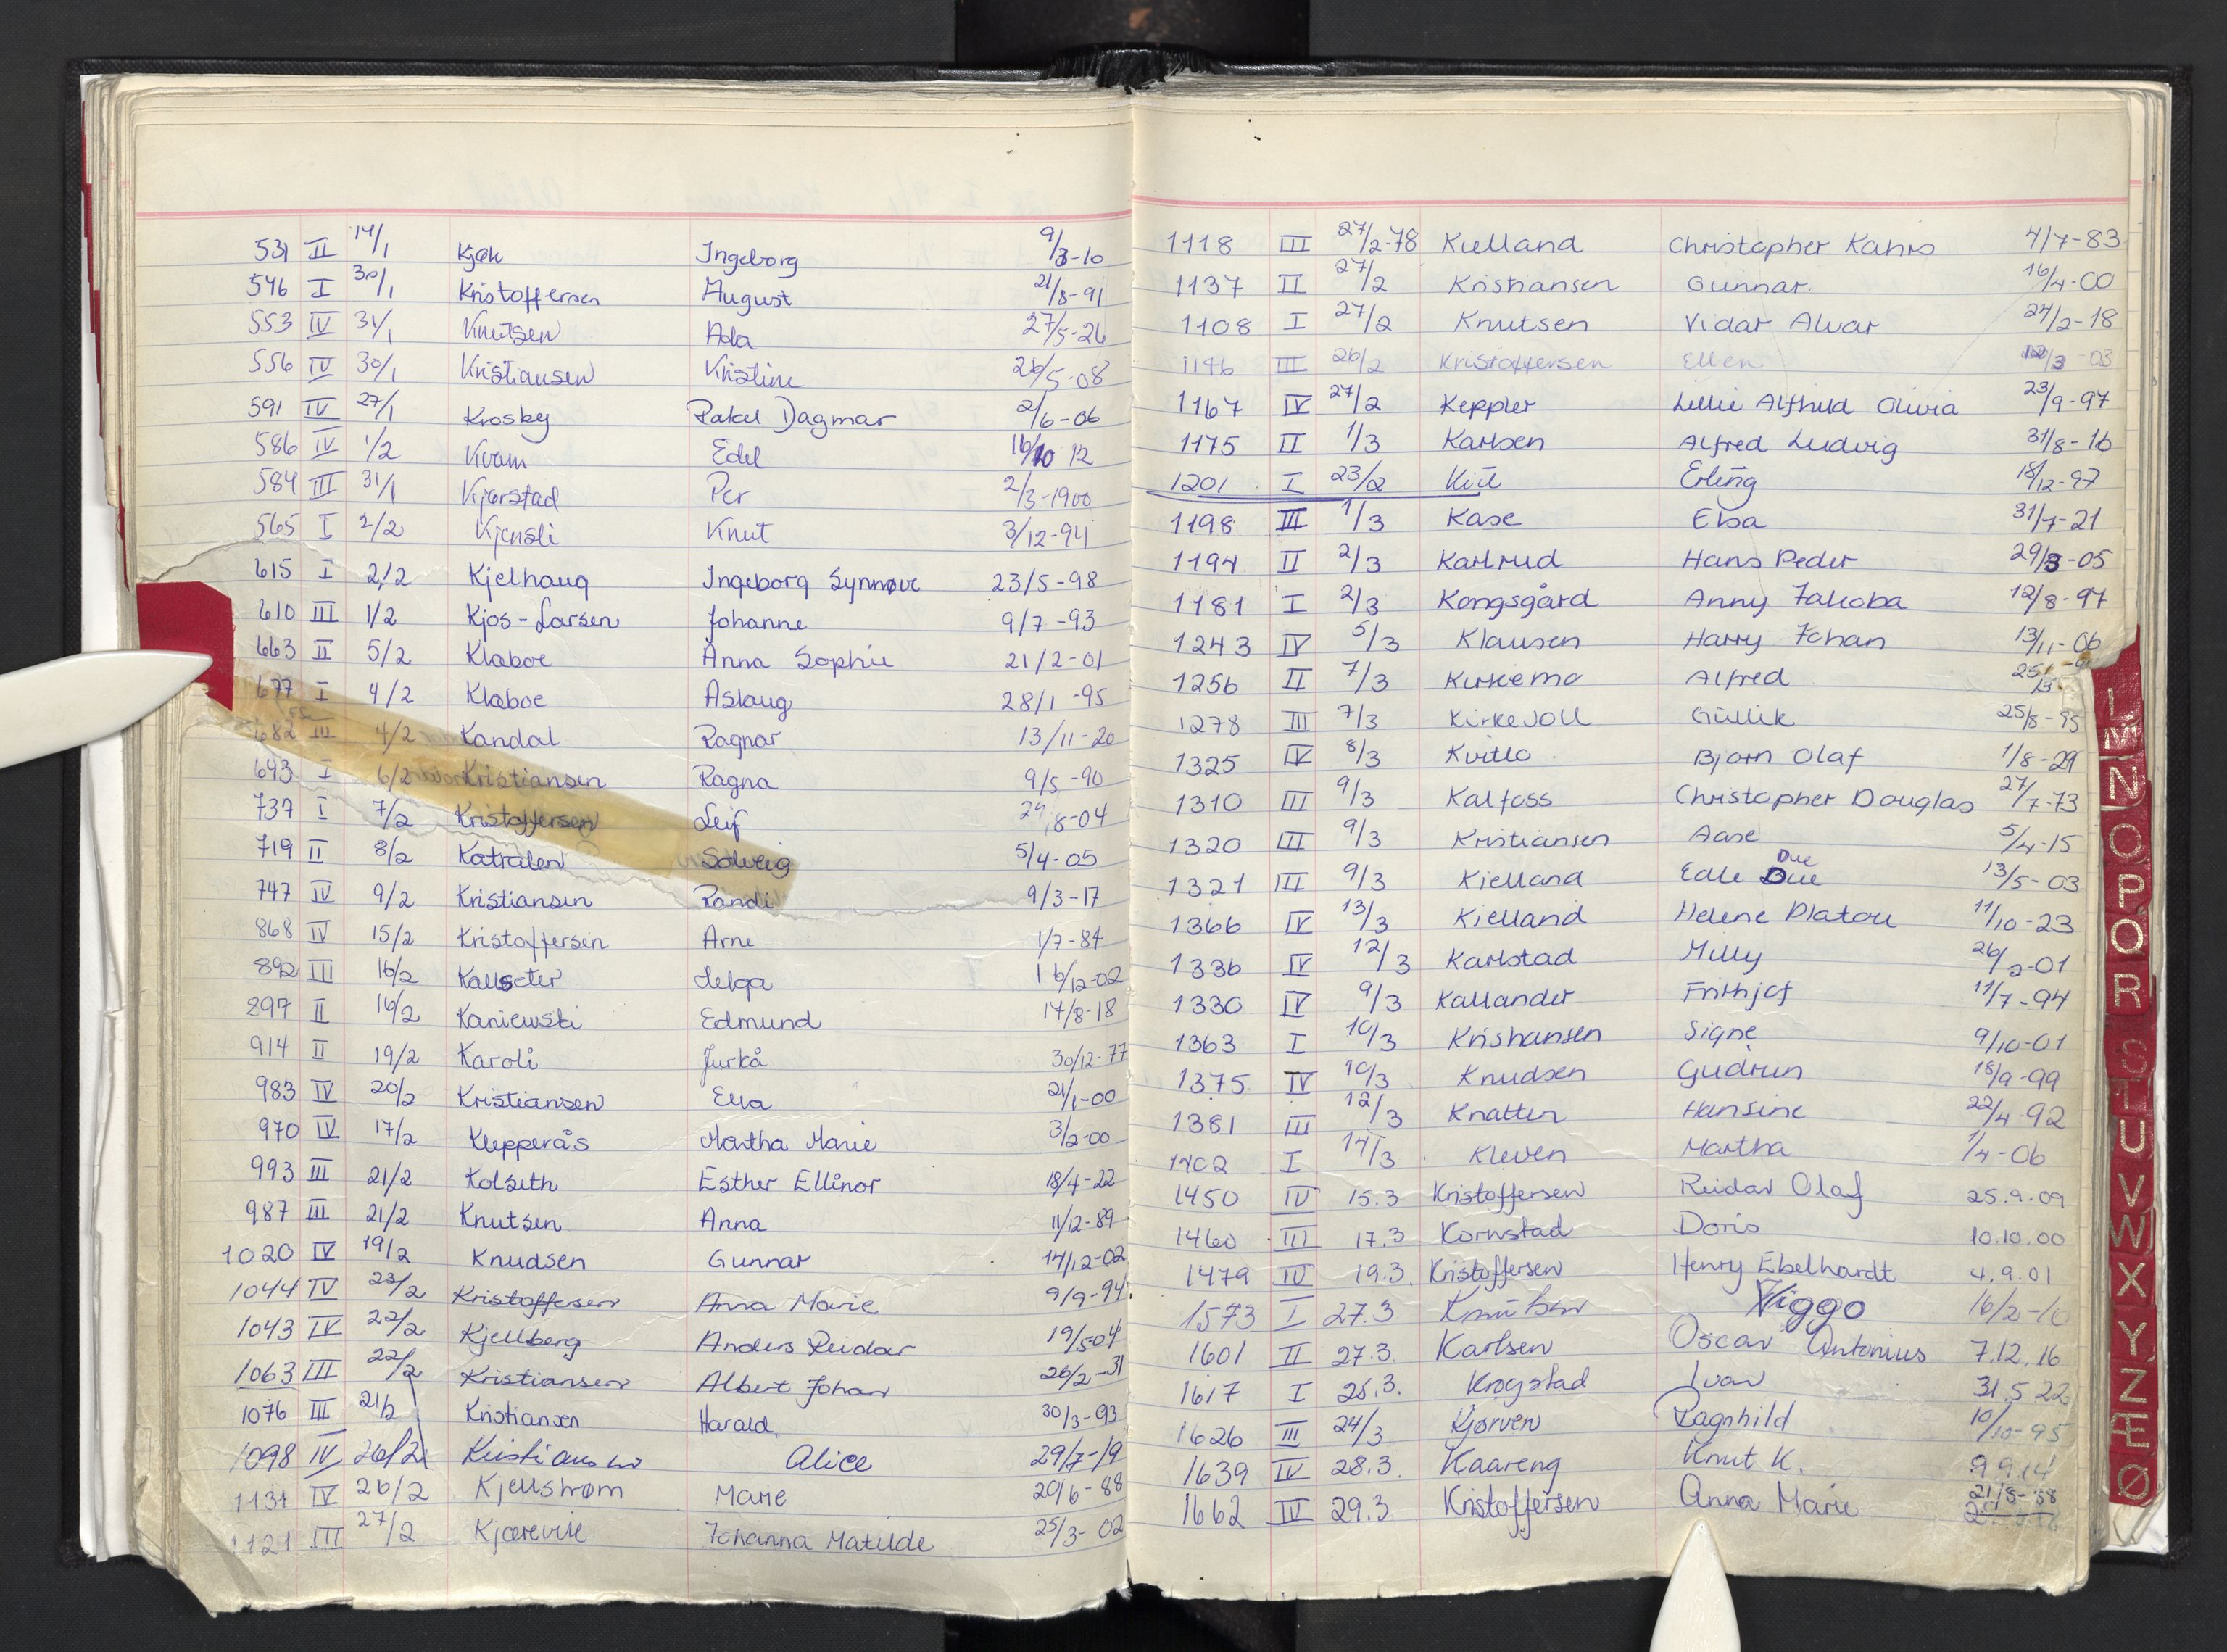 531 II 14/1 Kjøk Ingeborg 9/3-10
546 I 30/1 Kristoffersen August 21/8-91
553 IV 31/1 Knutsen Ada 27/5-26
556 IV 30/1 Kristiansen Kristine 26/5-08
591 IV 27/1 Krosby Rakel Dagmar 2/6-06
586 IV 1/2 Kvam Edel 16/10 12
584 III 31/1 Kjørstad Per 2/3-1900
565 I 2/2 Kjensli Knut 3/12-94
615 I 2/2 Kjelhaug Ingeborg Synnøve 23/5-98
610 III 1/2 Kjos-Larsen Johanne 9/7-93
663 II 5/2 Klæboe Anna Sophie 21/2-01
677 I 4/2 Klæboe Aslaug 28/1-95
682 III 4/2 Kandal Ragnar 13/11-20
693 I 6/2 Kristiansen Ragna 9/5-90
737 I 7/2 Kristoffersen Leif 29/8-04
719 II 8/2 Katralen Solveig 5/4-05
747 IV 9/2 Kristiansen Randi 9/3-17
868 IV 15/2 Kristoffersen Arne 1/7-84
892 III 16/2 Kallseter Helga 16/12-02
897 II 16/2 Kaniewski Edmund 14/8-18
914 II 19/2 Karoli Jurkå 30/12-77
983 IV 20/2 Kristiansen Ella 21/1-00
970 IV 17/2 Klepperås Martha Marie 3/2-00
993 III 21/2 Kolseth Esther Ellinor 18/4-22
987 III 21/2 Knutsen Anna 11/12-89
1020 IV 19/2 Knudsen Gunnar 14/12-02
1044 IV 23/2 Kristoffersen Anna Marie 9/9-94
1043 IV 22/2 Kjellberg Anders Reidar 19/5-04
1063 III 22/2 Kristiansen Albert Johan 26/2-31
1076 III 21/2 Kristiansen Harald 30/3-93
1098 IV 26/2 Kristiansen Alice 29/7-19
1131 IV 26/2 Kjellstrøm Marie 20/6-88
1121 III 27/2 Kjærevik Johanna Matilde 25/3-02
1118 III 27/2-78 Kielland Christopher Kahrs 4/7-83
1137 II 27/2 Kristiansen Gunnar 16/4-00
1108 I 27/2 Knutsen Vidar Alvar 24/2-18
1146 III 26/2 Kristoffersen Ellen 12/3 03
1167 IV 27/2 Keppler Lillie Alfhild Olivia 23/9-97
1175 II 1/3 Karlsen Alfred Ludvig 31/8-16
1201 I 23/2 Kiil Erling 18/12-97
1198 III 1/3 Kase Elsa 31/7-21
1194 II 2/3 Karlrud Hans Peder 29/3-05
1181 I 2/3 Kongsgård Anny Jakoba 12/8-97
1243 IV 5/3 Klausen Harry Johan 13/11-06
1256 II 7/3 Kirkemo Alfred
1278 III 7/3 Kirkevoll Gullik 25/8-95
1325 IV 8/3 Kvitlo Bjørn Olaf 1/8-29
1310 III 9/3 Kalfoss Christopher Douglas 27/7-73
1320 III 9/3 Kristiansen Aase 5/4-15
1321 III 9/3 Kielland Edle Due Due 13/5-03
1366 IV 13/3 Kielland Helene Platou 11/10-23
1336 IV 12/3 Karlstad Milly 26/2-01
1330 IV 9/3 Kallander Frithjof 11/7-94
1363 I 10/3 Kristiansen Signe 9/10-01
1375 IV 10/3 Knudsen Gudrun 18/9-99
1381 III 12/3 Knatten Hansine 22/4-92
1402 I 14/3 Kleven Martha 1/4-06
1450 IV 15.3 Kristoffersen Reidar Olaf 25.9.09
1460 III 17.3 Kornstad Doris 10.10.00
1479 IV 19.3. Kristoffersen Henry Ebelhardt 4.9.01
1573 I 27.3 Knutsen Viggo 16/2-10
1601 II 27.3. Karlsen Oscar Antonius 7.12.16
1617 I 25.3. Krogstad Ivar 31.5 22
1626 III 24/3 Kjørven Ragnhild 10/10-95
1639 IV 28.3. Kaareng Knut K. 9 9.14
1662 IV 29.3 Kristoffersen Anna Marie 21/8-38
L
M
N
O
P
Q
R
S
T
U
V
W
X
Y
Z
Æ
Ø